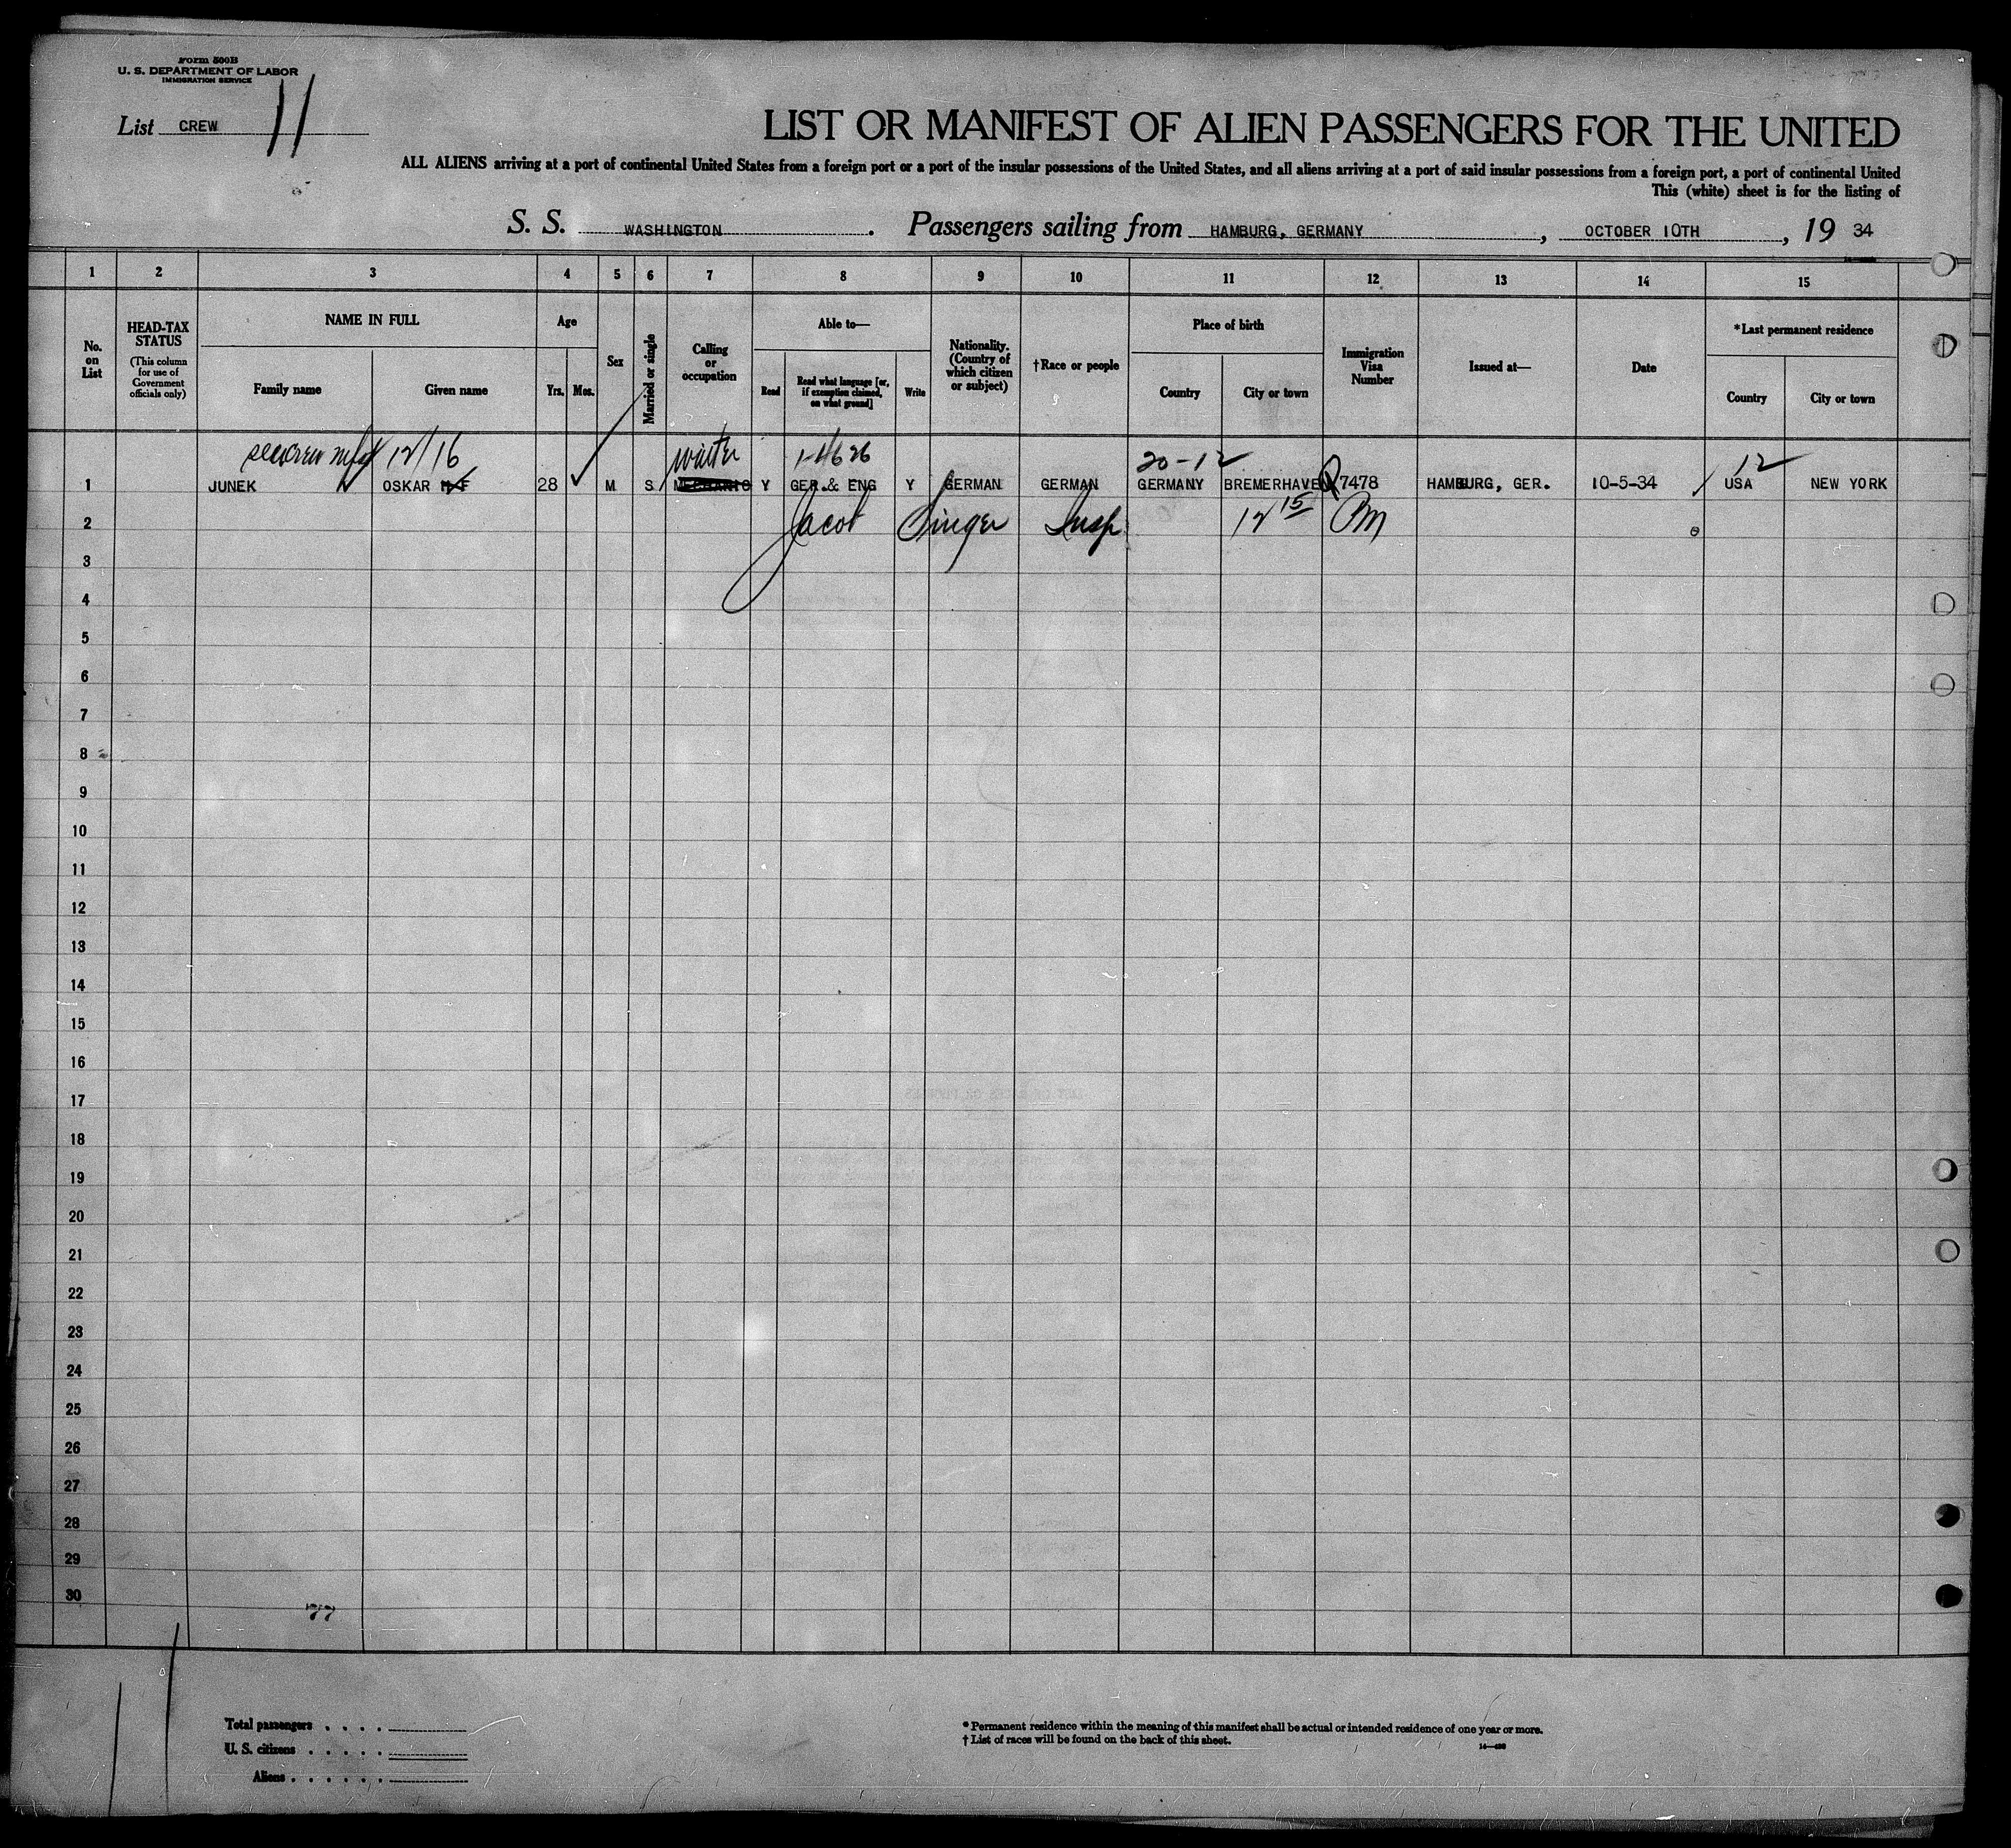 Form 500B
U. S. DEPARTMENT OF LABOR
IMMIGRATION SERVICE
List CREW 11
LIST OR MANIFEST OF ALIEN PASSENGERS FOR THE UNITED
ALL ALIENS arriving at a port of continental United States from a foreign port or a port of the insular possessions of the United States, and all aliens arriving at a port of said insular possessions from a foreign port, a port of continental United
This (white) sheet is for the listing of
S. S. WASHINGTON . Passengers sailing from HAMBURG, GERMANY , OCTOBER 10TH , 19 34
1 2 3 4 5 6 7 8 9 10 11 12 13 14 15
No. on List
HEAD-TAX STATUS
(This column for use of Government officials only)
NAME IN FULL
Family name
Given name
Age
Yrs.
Mos.
Sex
Married or single
Calling or occupation
Able to—
Read
Read what language [or, if exemption claimed, on what ground]
Write
Nationality. (Country of which citizen or subject)
†Race or people
Place of birth
Country
City or town
Immigration Visa Number
Issued at—
Date
*Last permanent residence
Country
City or town
12/16 waiter 20-12 12
1 JUNEK OSKAR 28 M S MECHANIC Y GER.& ENG Y GERMAN GERMAN GERMANY BREMERHAVEN Q 7478 HAMBURG, GER. 10-5-34 USA NEW YORK
2 Jacob Singer Insp 12 15 PM
3
4
5
6
7
8
9
10
11
12
13
14
15
16
17
18
19
20
21
22
23
24
25
26
27
28
29
30
77
Total passengers . . . .
U. S. citizens . . . . .
Aliens . . . . . .
* Permanent residence within the meaning of this manifest shall be actual or intended residence of one year or more.
† List of races will be found on the back of this sheet.